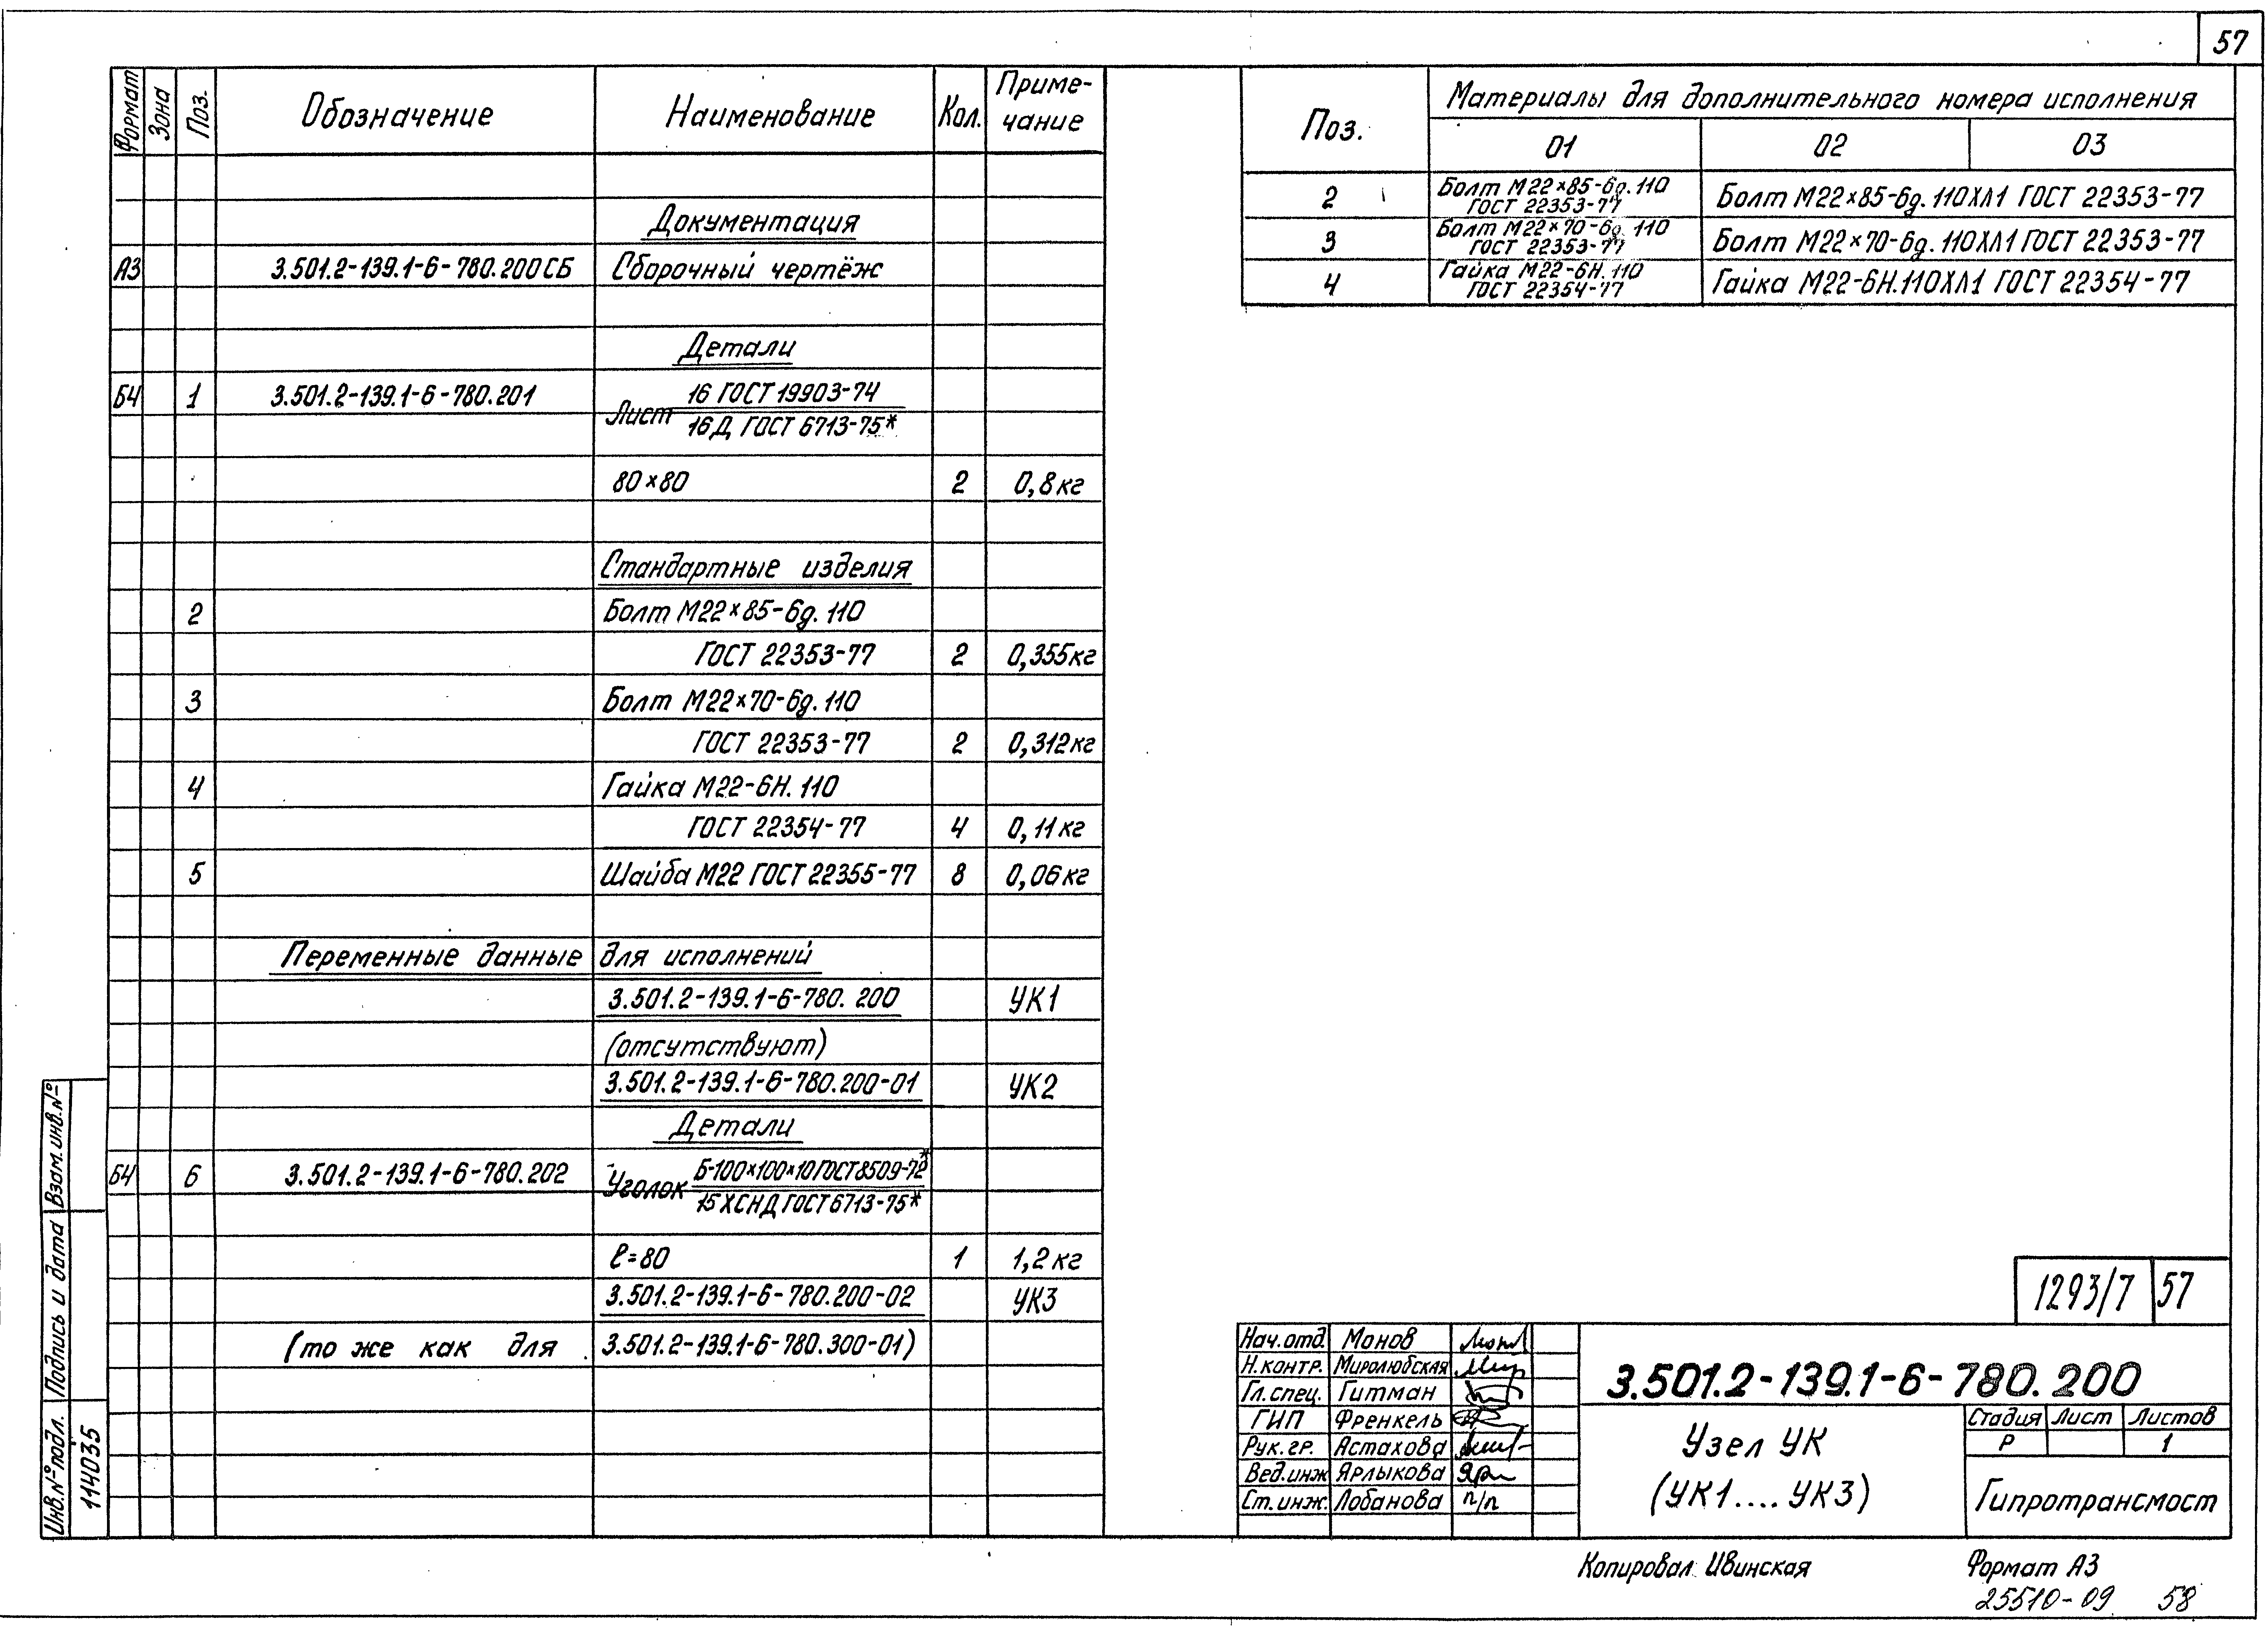 57
Формат Зона Поз. Обозначение Наименование Кол. Приме-
чание
Документация
А3 3.501.2-139.1-6-780.200СБ Сборочный чертёж
Детали
БЧ 1 3.501.2-139.1-6-780.201 Лист 16 ГОСТ 19903-74
16Д ГОСТ 6713-75*
80×80 2 0,8кг
Стандартные изделия
2 Болт М22×85-6g.110
ГОСТ 22353-77 2 0,355кг
3 Болт М22×70-6g.110
ГОСТ 22353-77 2 0,312кг
4 Гайка М22-6Н.110
ГОСТ 22354-77 4 0,11кг
5 Шайба М22 ГОСТ 22355-77 8 0,06кг
Переменные данные для исполнений
3.501.2-139.1-6-780.200 УК1
(отсутствуют)
3.501.2-139.1-6-780.200-01 УК2
Детали
БЧ 6 3.501.2-139.1-6-780.202 Уголок Б-100×100×10 ГОСТ 8509-72*
15ХСНД ГОСТ 6713-75*
ℓ=80 1 1,2кг
3.501.2-139.1-6-780.200-02 УК3
(то же как для 3.501.2-139.1-6-780.300-01)
Поз. Материалы для дополнительного номера исполнения
01 02 03
2 Болт М22×85-6g.110
ГОСТ 22353-77 Болт М22×85-6g.110ХЛ1 ГОСТ 22353-77
3 Болт М22×70-6g.110
ГОСТ 22353-77 Болт М22×70-6g.110ХЛ1 ГОСТ 22353-77
4 Гайка М22-6Н.110
ГОСТ 22354-77 Гайка М22-6Н.110ХЛ1 ГОСТ 22354-77
Инв.№ подл. Подпись и дата Взам.инв.№
114035
1293/7 57
Нач.отд. Монов
Н.контр. Миролюбская
Гл.спец. Гитман
ГИП Френкель
Рук.гр. Астахова
Вед.инж Ярлыкова
Ст.инж. Лобанова п/п
3.501.2-139.1-6-780.200
Узел УК
(УК1....УК3)
Стадия Лист Листов
Р 1
Гипротрансмост
Копировал Ивинская Формат А3
25510-09 58